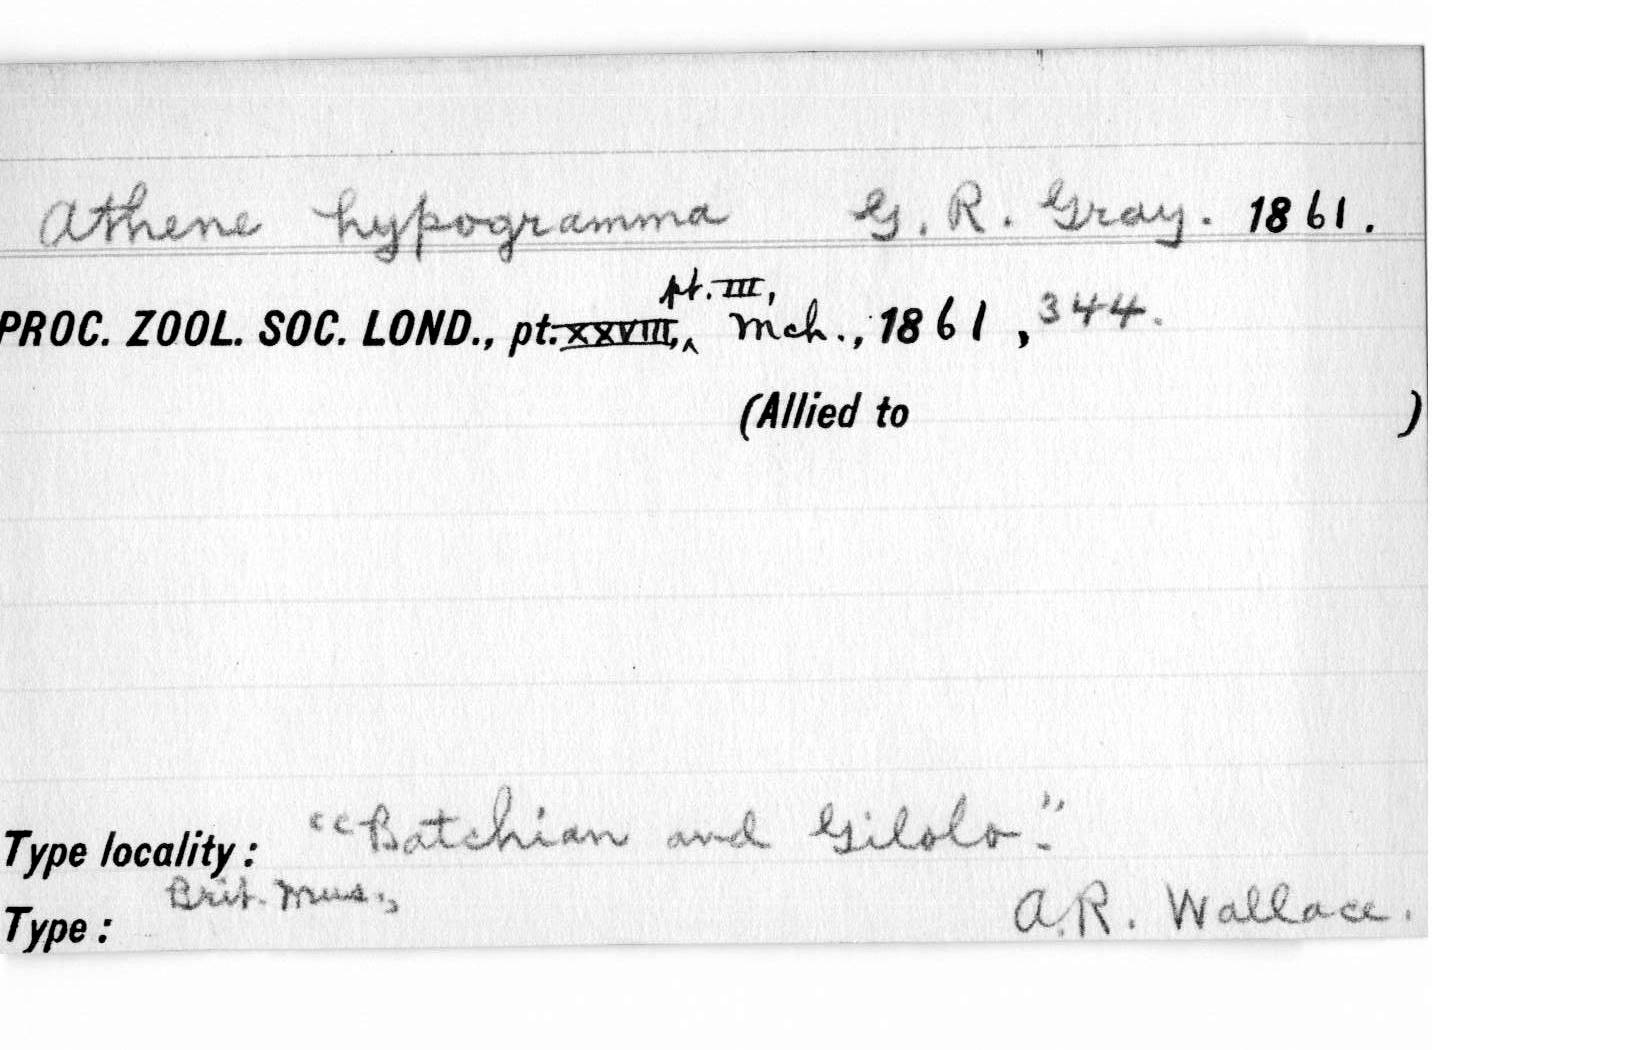 Athene hypogramma G. R. Gray. 1861.
pt. III,
PROC. ZOOL. SOC. LOND., pt. XXVIII,^ Mch., 1861, 344.
(Allied to )
Type locality: "Batchian and Gilolo."
Type: Brit. Mus., A.R. Wallace.